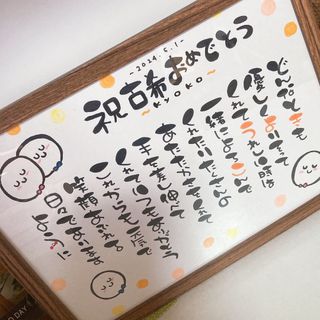 ~2024.5.1~
祝古希おめでとう
~KYOKO~
どんなときも
優しくよりそって
くれてうれしい時は
一緒によろこんで
くれたりたくさんの
あたたかさをくれて
手を差し伸べて
くれていつもありがとう
これからも元気で
笑顔あふれる
日々でありますように
DAY!